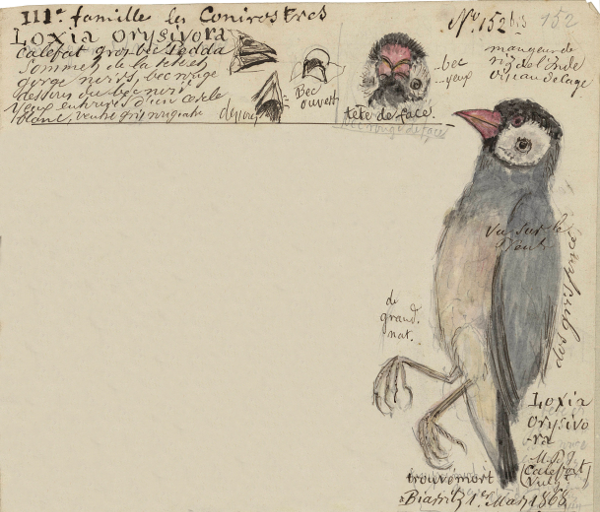 IIIe famille les Conirostres
No. 152 bis 152
Loxia orysivora
calefat gros bec Padda
Sommet de la tête et
gorge noirs, bec rouge
dessous du bec noir
Yeux entourés d'un cercle
blanc, ventre gris rougeatre
dessous
Bec
ouvert
bec
yeux
tête de face.
mangeur de
riz de l'Inde
oiseau de cage
vu sur le
de
grand.
nat.
des
Loxia
orysivo
ra
(Calefat)
trouvé mort
Biarritz 1er Mai 1868